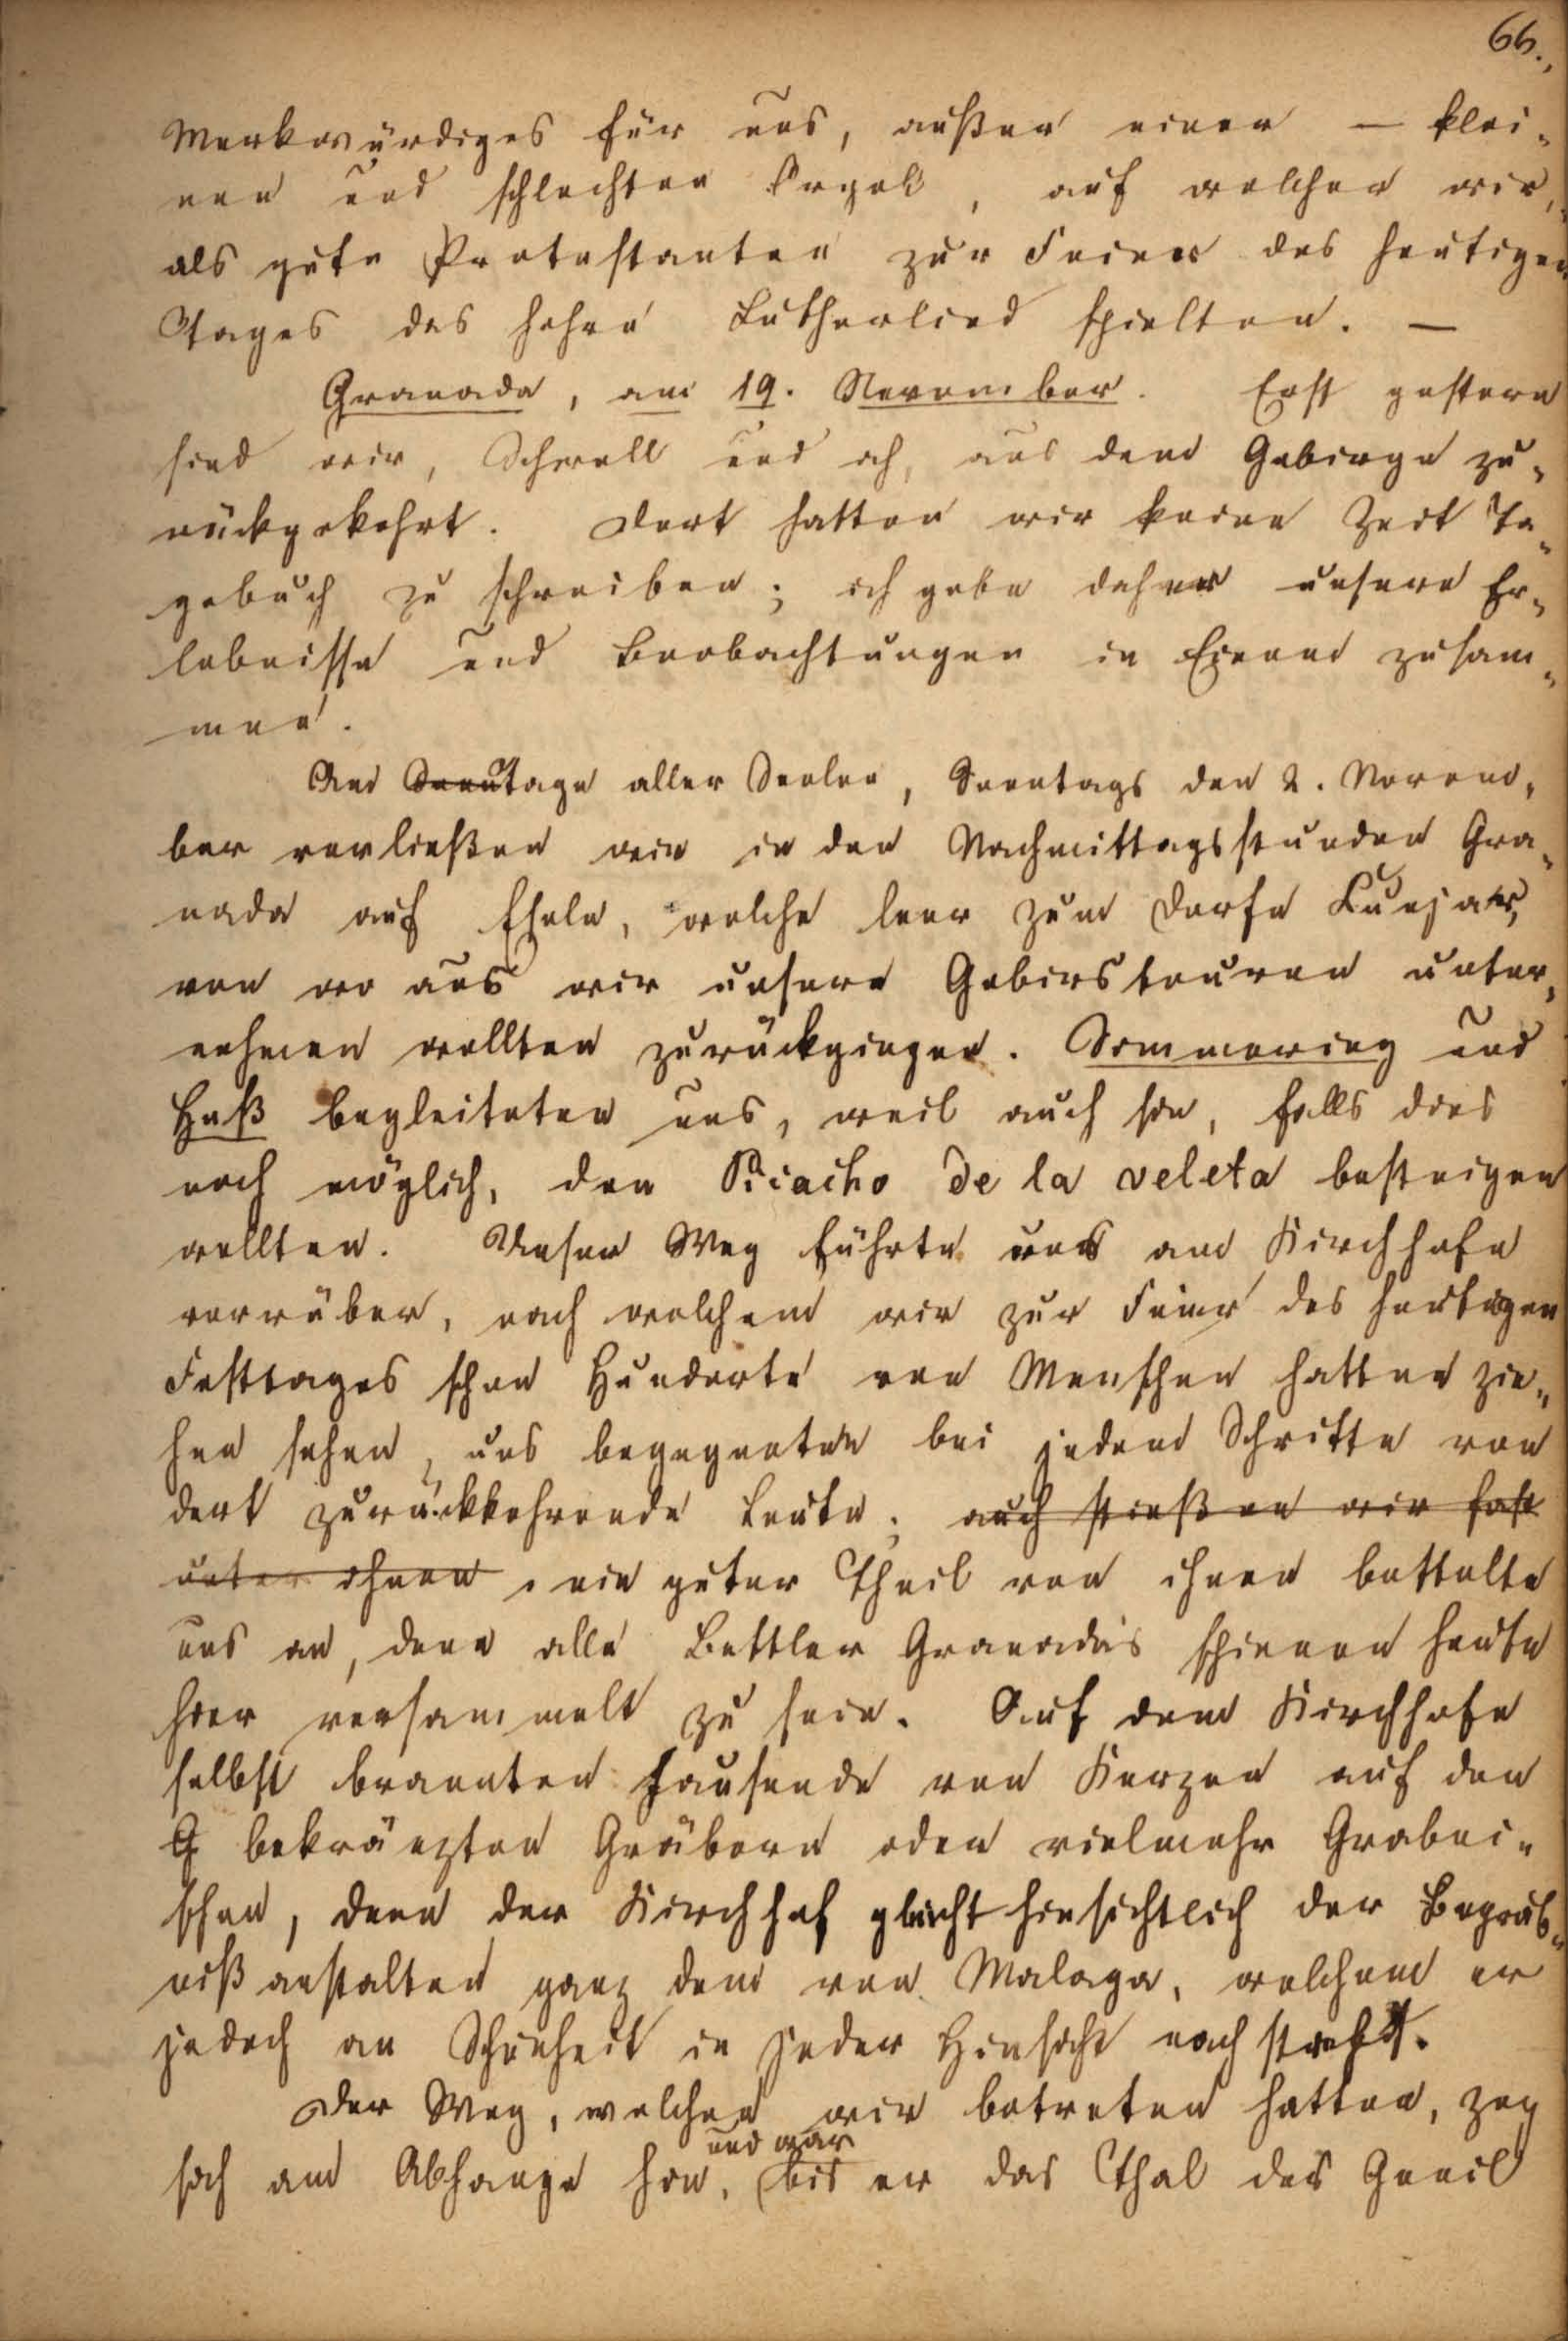 66.,
Merkwürdiges für uns, außer einer — klei-
nen und schlechten Orgel, auf welcher wir,
als gute Protestanten zur Feier des heutigen
Tages das hehre Lutherlied spielten. —
Granada, am 19. November. Erst gestern
sind wir, Schnell und ich, aus dem Gebirge zu-
rückgekehrt. Dort hatten wir keine Zeit Ta-
gebuch zu schreiben; ich gebe daher unsere Er-
lebnisse und Beobachtungen in Einem zusam-
men.
Am Sonntage aller Seelen, Sonntags den 2. Novem-
ber verließen wir in den Nachmittagsstunden Gra-
nada auf Eseln, welche leer zum Dorfe Huejar,
von wo aus wir unsere Gebirstouren unter-
nehmen wollten zurückgingen. Sommering und
Haß begleiteten uns, weil auch sie, falls dies
noch möglich, den Picacho de la veleta besteigen
wollten. Unser Weg führte uns am Kirchhofe
vorrüber, nach welchem wir zur Feier des heutigen
Festtages schon Hunderte von Menschen hatten zie-
hen sehen, uns begegneten bei jedem Schritte von
dort zurückkehrende Leute; auch stießen wir fast
unter ihnen, ein guter Theil von ihnen bettelte
uns an, denn alle Bettler Granada's schienen heute
hier versammelt zu sein. Auf dem Kirchhofe
selbst brannten tausende von Kerzen auf den
G bekränzten Gräbern oder vielmehr Grabni-
schen, denn der Kirchhof gleicht hinsichtlich der Begräb-
nißanstalten ganz dem von Malaga, welchem er
jedoch an Schönheit in jeder Hinsicht nachsteht.
Der Weg, welchen wir betreten hatten, zog
und war
sich am Abhange hin, bis er das Thal des Genil